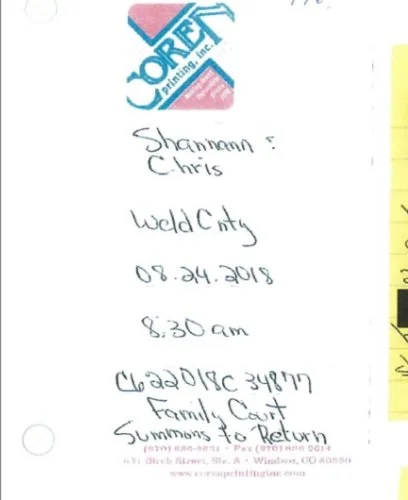 COREN
printing, inc.
Shannann &
Chris
Weld Cnty
08.24.2018
8:30 am
C622018C 34877
Family Court
Summons to Return
Birch Street, Ste. A • Windsor, CO 80550
www.corenprintinginc.com